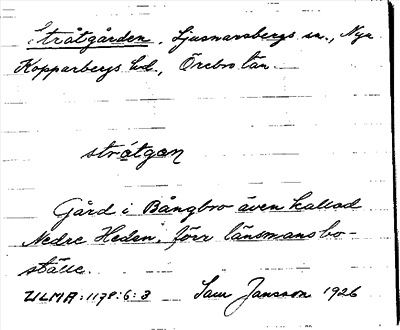 Stråtgården, Ljusnarsbergs sn., Nya
Kopparbergs hd., Örebro län.
stråtgan
Gård i Bångbro även kallad
Nedre Heden, förr länsmansbo-
ställe.
ULMA:1178:6:3 Sam Jansson 1926